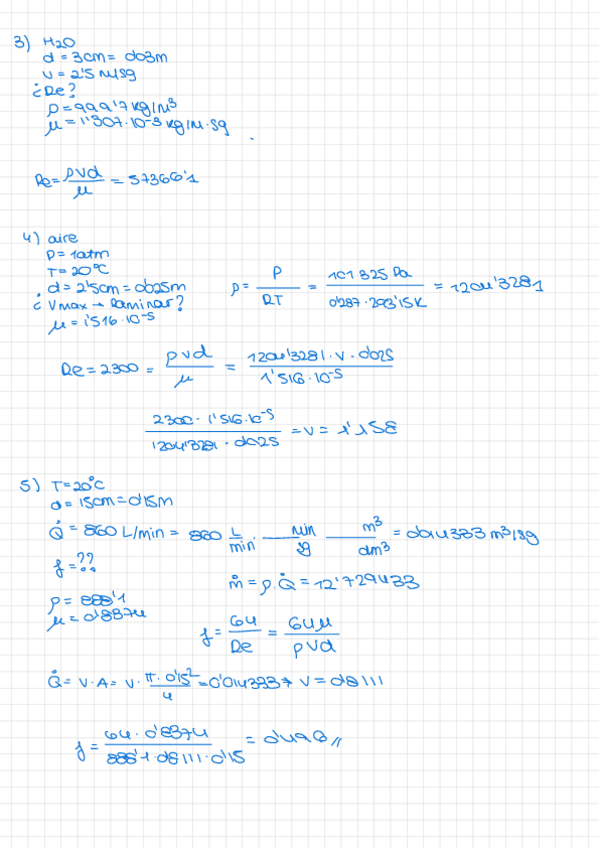 3) H2O
d = 3cm = 0'03m
v = 2'5 m/sg
¿Re?
ρ = 999'7 kg/m³
μ = 1'307·10⁻³ kg/m·sg
Re = ρvd / μ = 57366'1
4) aire
P = 1atm
T = 20°C
d = 2'5cm = 0'025m
¿ Vmax → laminar?
μ = 1'516·10⁻⁵
ρ = P / RT = 101325 Pa / 0'287·293'15K = 1204'3281
Re = 2300 = ρvd / μ = 1204'3281·v·0'025 / 1'516·10⁻⁵
2300·1'516·10⁻⁵ / 1204'3281·0'025 = v = 1'158
5) T = 20°C
d = 15cm = 0'15m
Q̇ = 860 L/min = 860 L/min · min/sg · m³/dm³ = 0'014333 m³/sg
f = ??
ṁ = ρ·Q̇ = 12'729433
ρ = 888'1
μ = 0'8374
f = 64 / Re = 64μ / ρvd
Q̇ = v·A = v· π·0'15² / 4 = 0'014333 → v = 0'8111
f = 64·0'8374 / 888'1·0'8111·0'15 = 0'498 //